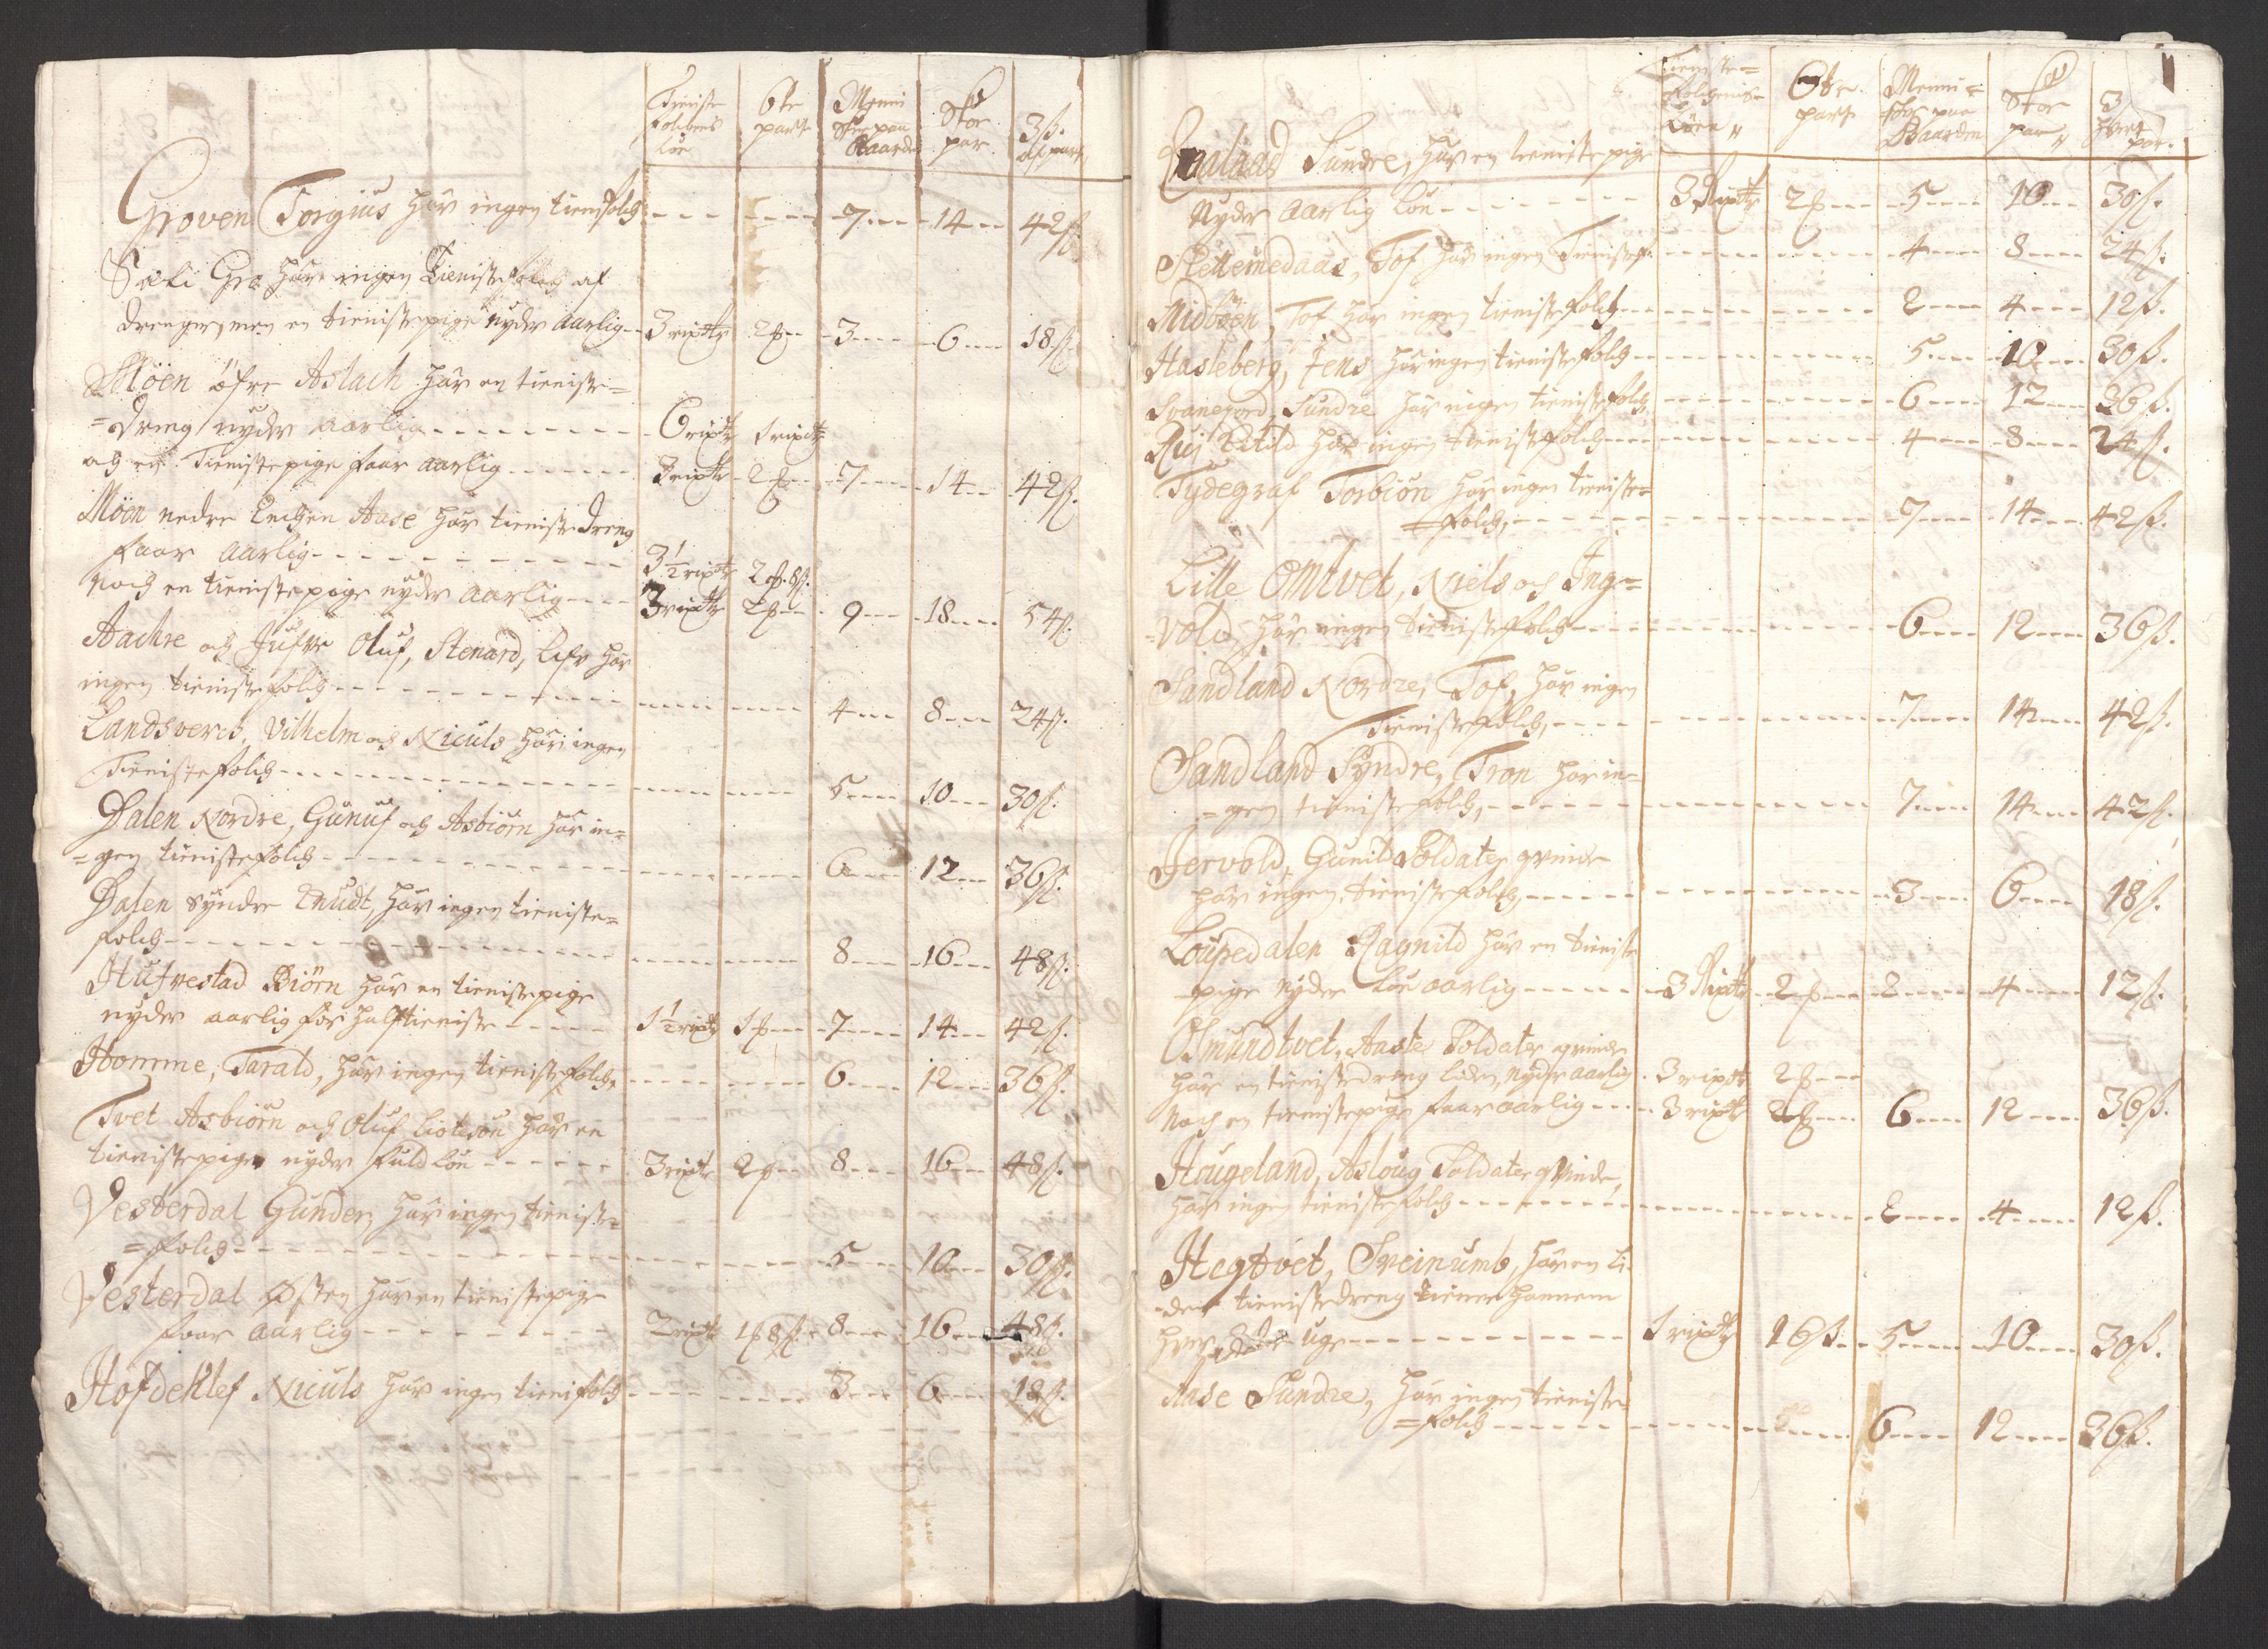 Tieniste folckens Løn | 6te part | Menni sker paa Gaarden | Skoe par | 3 ß. af par
Groven Torgius har ingen tienistfolch --- 7 --- 14 --- 42 ß.
Sæli Gro har ingen Tienistefolch af
drenge, men en tienistepige nyder aarlig -- 3 rixdlr 2 --- 3 --- 6 --- 18 ß.
Möen öfre Aslach har en tieniste=
=dreng nyder aarlig --- 6 rixdlr 1 rixdlr
och en Tienistepige faar aarlig --- 3 rixdlr 2 --- 7 --- 14 --- 42 ß.
Möen nedre Enchen Aase har tieniste dreng
faar aarlig --- 3 1/2 rixdlr 2 . 8 ß.
noch en tienistepige nyder aarlig --- 3 rixdlr 2 --- 9 --- 18 --- 54 ß.
Aachre och Oluf, Stenard, har
ingen tienistefolch --- 4 --- 8 --- 24 ß.
Landsverch, Vilhelm och Niculs har ingen
Tienistefolch --- 5 --- 10 --- 30 ß.
Dalen Nordre, Gunuf och Asbiörn har in=
=gen tienistefolch --- 6 --- 12 --- 36 ß.
Dalen Syndre Knudt, har ingen tieniste=
folch --- 8 --- 16 --- 48 ß.
Hufvestad Biörn har en tienistepige
nyder aarlig for half tieniste --- 1 1/2 rixdlr 1 --- 7 --- 14 --- 42 ß.
Homme, Tarald, har ingen tienistefolch --- 6 --- 12 --- 36 ß.
Tvet Asbiörn och Oluf har en
tienistepige nyder fuld løn --- 3 rixdlr 2 --- 8 --- 16 --- 48 ß.
Vesterdal Gunder, har ingen tieniste=
=folch --- 5 --- 10 --- 30 ß.
Vesterdal Østen har en tienistepige
faar aarlig --- 2 rixdlr 1 8 ß. 8 --- 16 --- 48 ß.
Hofdeklef Niculs har ingen tienistfolch --- 3 --- 6 --- 18 ß.
Tieniste= folchenis Løen | 6te part | Menni= sker paa Gaarden | Skoe par | 3 ß hver par.
Sundre, har en tienistepige
Nyder aarlig løn --- 3 Rixdlr 2 --- 5 --- 10 --- 30 ß.
Slettemedaas, Tof har ingen Tienistef. --- 4 --- 8 --- 24 ß.
Midböen, Tof har ingen tienistefolch --- 2 --- 4 --- 12 ß.
Hasleberg, Jens har ingen tienistefolch --- 5 --- 10 --- 30 ß.
Svanejord, Sundre har ingen tienistefolch --- 6 --- 12 --- 36 ß.
Ruj Ketild har ingen tienistefolch --- 4 --- 8 --- 24 ß.
Tydegraf Torbiörn har ingen tieniste=
=folch, --- 7 --- 14 --- 42 ß.
Lille Omtvet, Niels och Ing=
=vold, har ingen tienistefolch --- 6 --- 12 --- 36 ß.
Sandland Nordre, Tof, har ingen
Tienistefolch, --- 7 --- 14 --- 42 ß.
Sandland Syndre, Tron har in=
=gen tienistefolch, --- 7 --- 14 --- 42 ß.
Jervold, Gunild Soldater qvinde
har ingen tienistefolch, --- 3 --- 6 --- 18 ß.
Loupedalen Ragnild har en tieniste
pige nyder løn aarlig --- 3 Rixdlr 2 --- 2 --- 4 --- 12 ß.
Osmundtvet, Aaste Soldater qvinde
har en tienistedreng liden, nyder aarlig . 3 rixdlr 2 ---
Noch en tienistepige faar aarlig --- 3 rixdlr 2 --- 6 --- 12 --- 36 ß.
Hougeland, Asloug Soldater qvinde,
har ingen tienistefolch --- 2 --- 4 --- 12 ß.
Hegtvet, Sveinumb, har en li=
=den tienistedreng tiener hannem
hver uge --- 1 rixdlr 16 ß. 5 --- 10 --- 30 ß.
Aase Sundre, har ingen tieniste
=folch --- 6 --- 12 --- 36 ß.